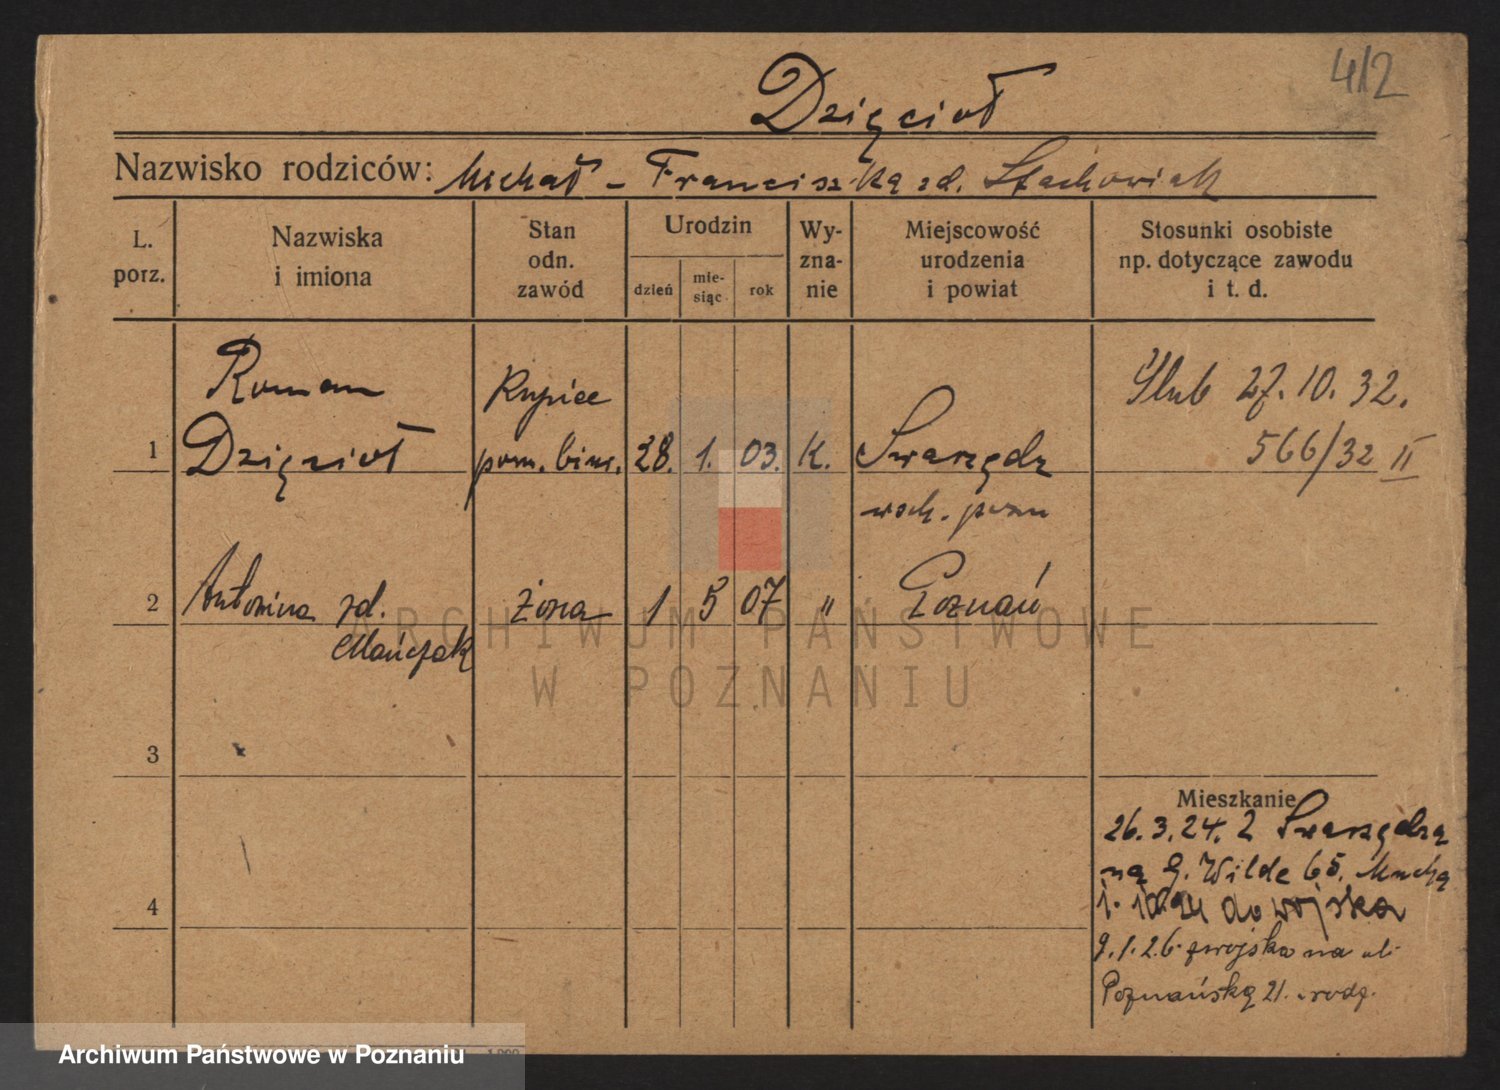 4/2
Dzięcioł
Nazwisko rodziców: Michał – Franciszka zd. Stachowiak
L. porz.
Nazwiska i imiona
Stan odn. zawód
Urodzin
dzień
mie-siąc
rok
Wy-zna-nie
Miejscowość urodzenia i powiat
Stosunki osobiste np. dotyczące zawodu i t. d.
Roman Kupiec Ślub 27.10.32.
1 Dzięcioł pom. biur. 28. 1. 03. K. Swarzędz 566/32 II
wsch. pozn
2 Antonina zd. żona 1 5 07 " Poznań
Mańczak
3
4
Mieszkanie
26.3.24. z Swarzędza
na G. Wilde 65. Mucha
1.10.24 do wojska
9.1.26 z wojska na ul.
Poznańską 21. rodz.
ARCHIWUM PAŃSTWOWE
W POZNANIU
Archiwum Państwowe w Poznaniu